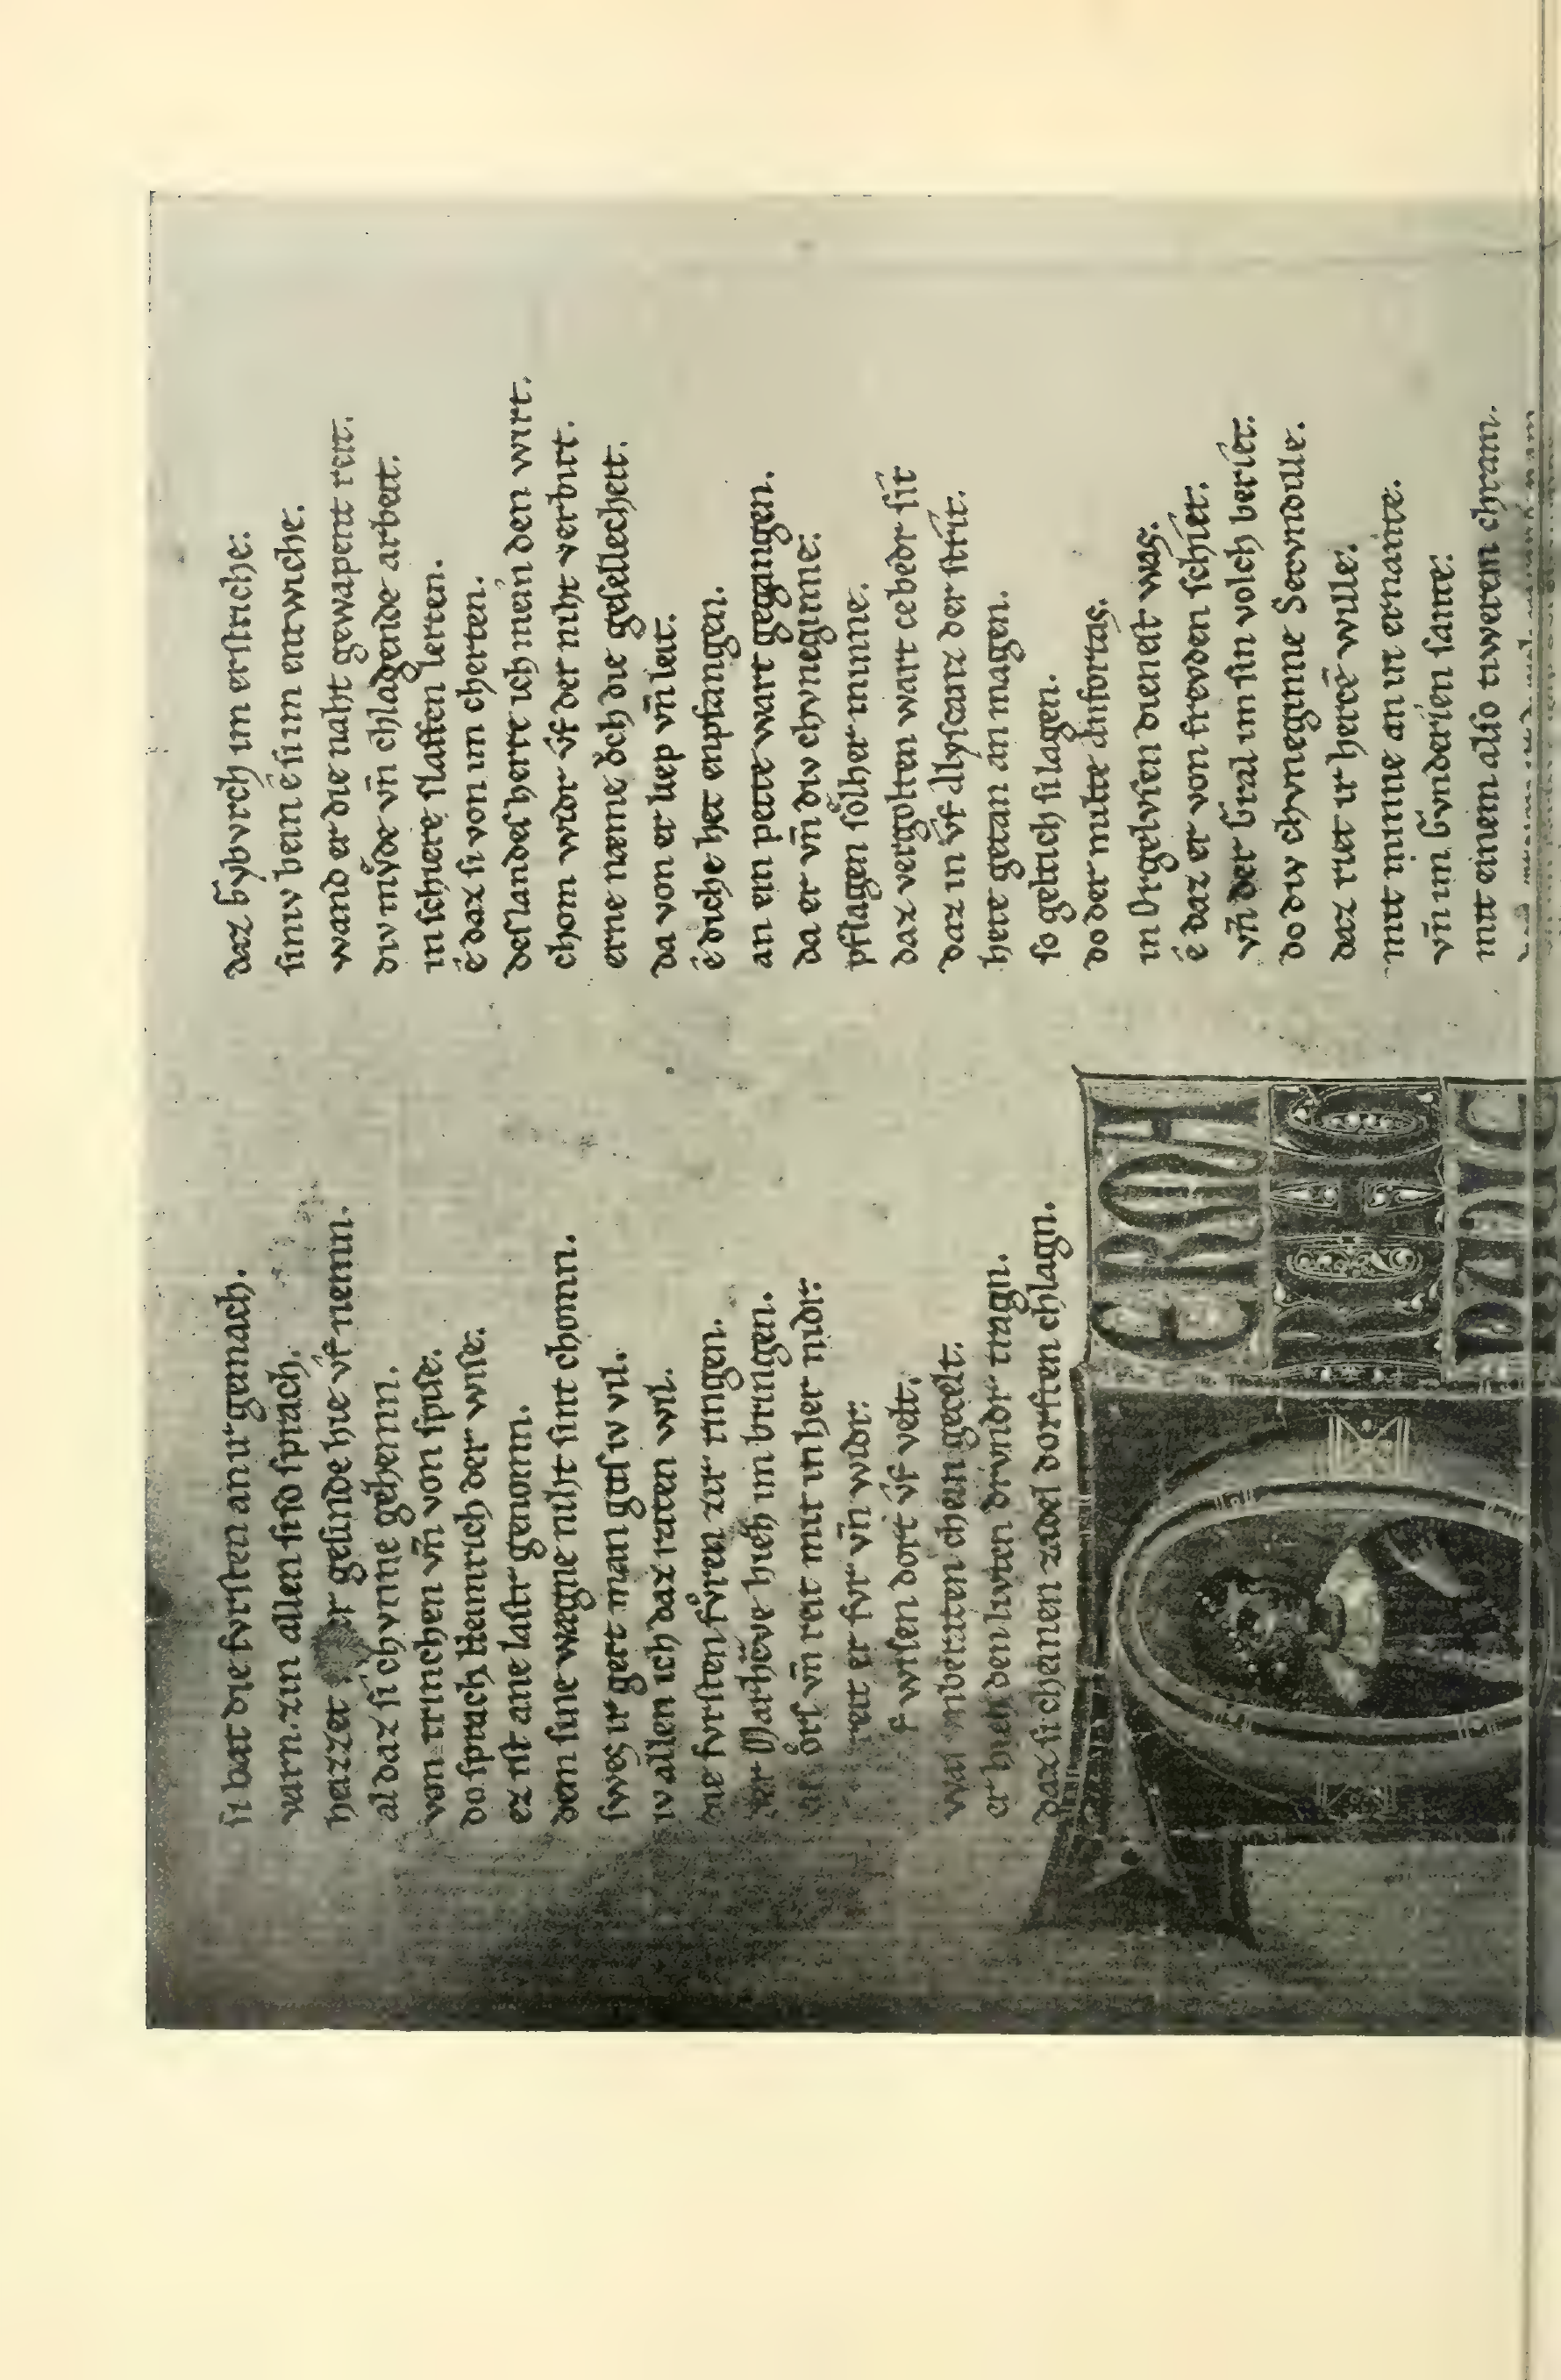 ſit bat die fvrſten an ir gemach.
varn. zin allen ſi ſo ſprach.
heizzet er geſinde hie vf nemn.
al daz ſich ẏnne gehemn.
von trinchen vn̄ von ſpiſe.
do ſprach Heinrich der wiſe.
ez iſt ane laſtr genomn.
dem ſine wægne niht ſint chomn.
ſwes ir gert man git ſiv vil.
iv allen ich daz raten wil.
die fvrſten fvͦren zir ringen.
er Marhcͦve hieh im bringen.
oͤrſ vn̄ reit mit in her nidr.
reit er fvr vn̄ widr.
f wiſen dort vf velt.
was vnberaten chein gecelt.
er hieh den livten drvndr tragn.
daz ſi cheinen zwivel dorften chlagn.
EROH
RDIC
daz Gẏbvrch im erſtriche.
ſiniv bein ê ſi im entwiche.
wand er die naht gewapent reit.
div mvͤde vn̄ chlagende arbeit.
in ſchiere ſlaffen lerten.
ê daz ſi von im cherten.
deſ landeſ herre ich mein den wirt.
chom widr vf der niht verbirt.
erne næme oͮch die geſellecheit.
da von er liep vn̄ leit.
ê diche het enpfangen.
an ein pette wart gegangen.
da er vn̄ div chvneginne.
pflagen ſoͤlher minne.
daz vergolten wart cebedr ſit
daz in vf alyſcanz der ſtrit.
hete getan an magen.
ſo gelich ſi lagen.
do der mvlte anfortas.
in Orgelvſen dieneſt was.
ê daz er von frevden ſchiet.
vn̄ der Gral im ſin volch beriet.
do div chvneginne Secvndille.
daz riet ir hercē wille.
mit minne an in ernante.
vn̄ im Gvnderien ſante.
mit einem alſo tiwerem chram.